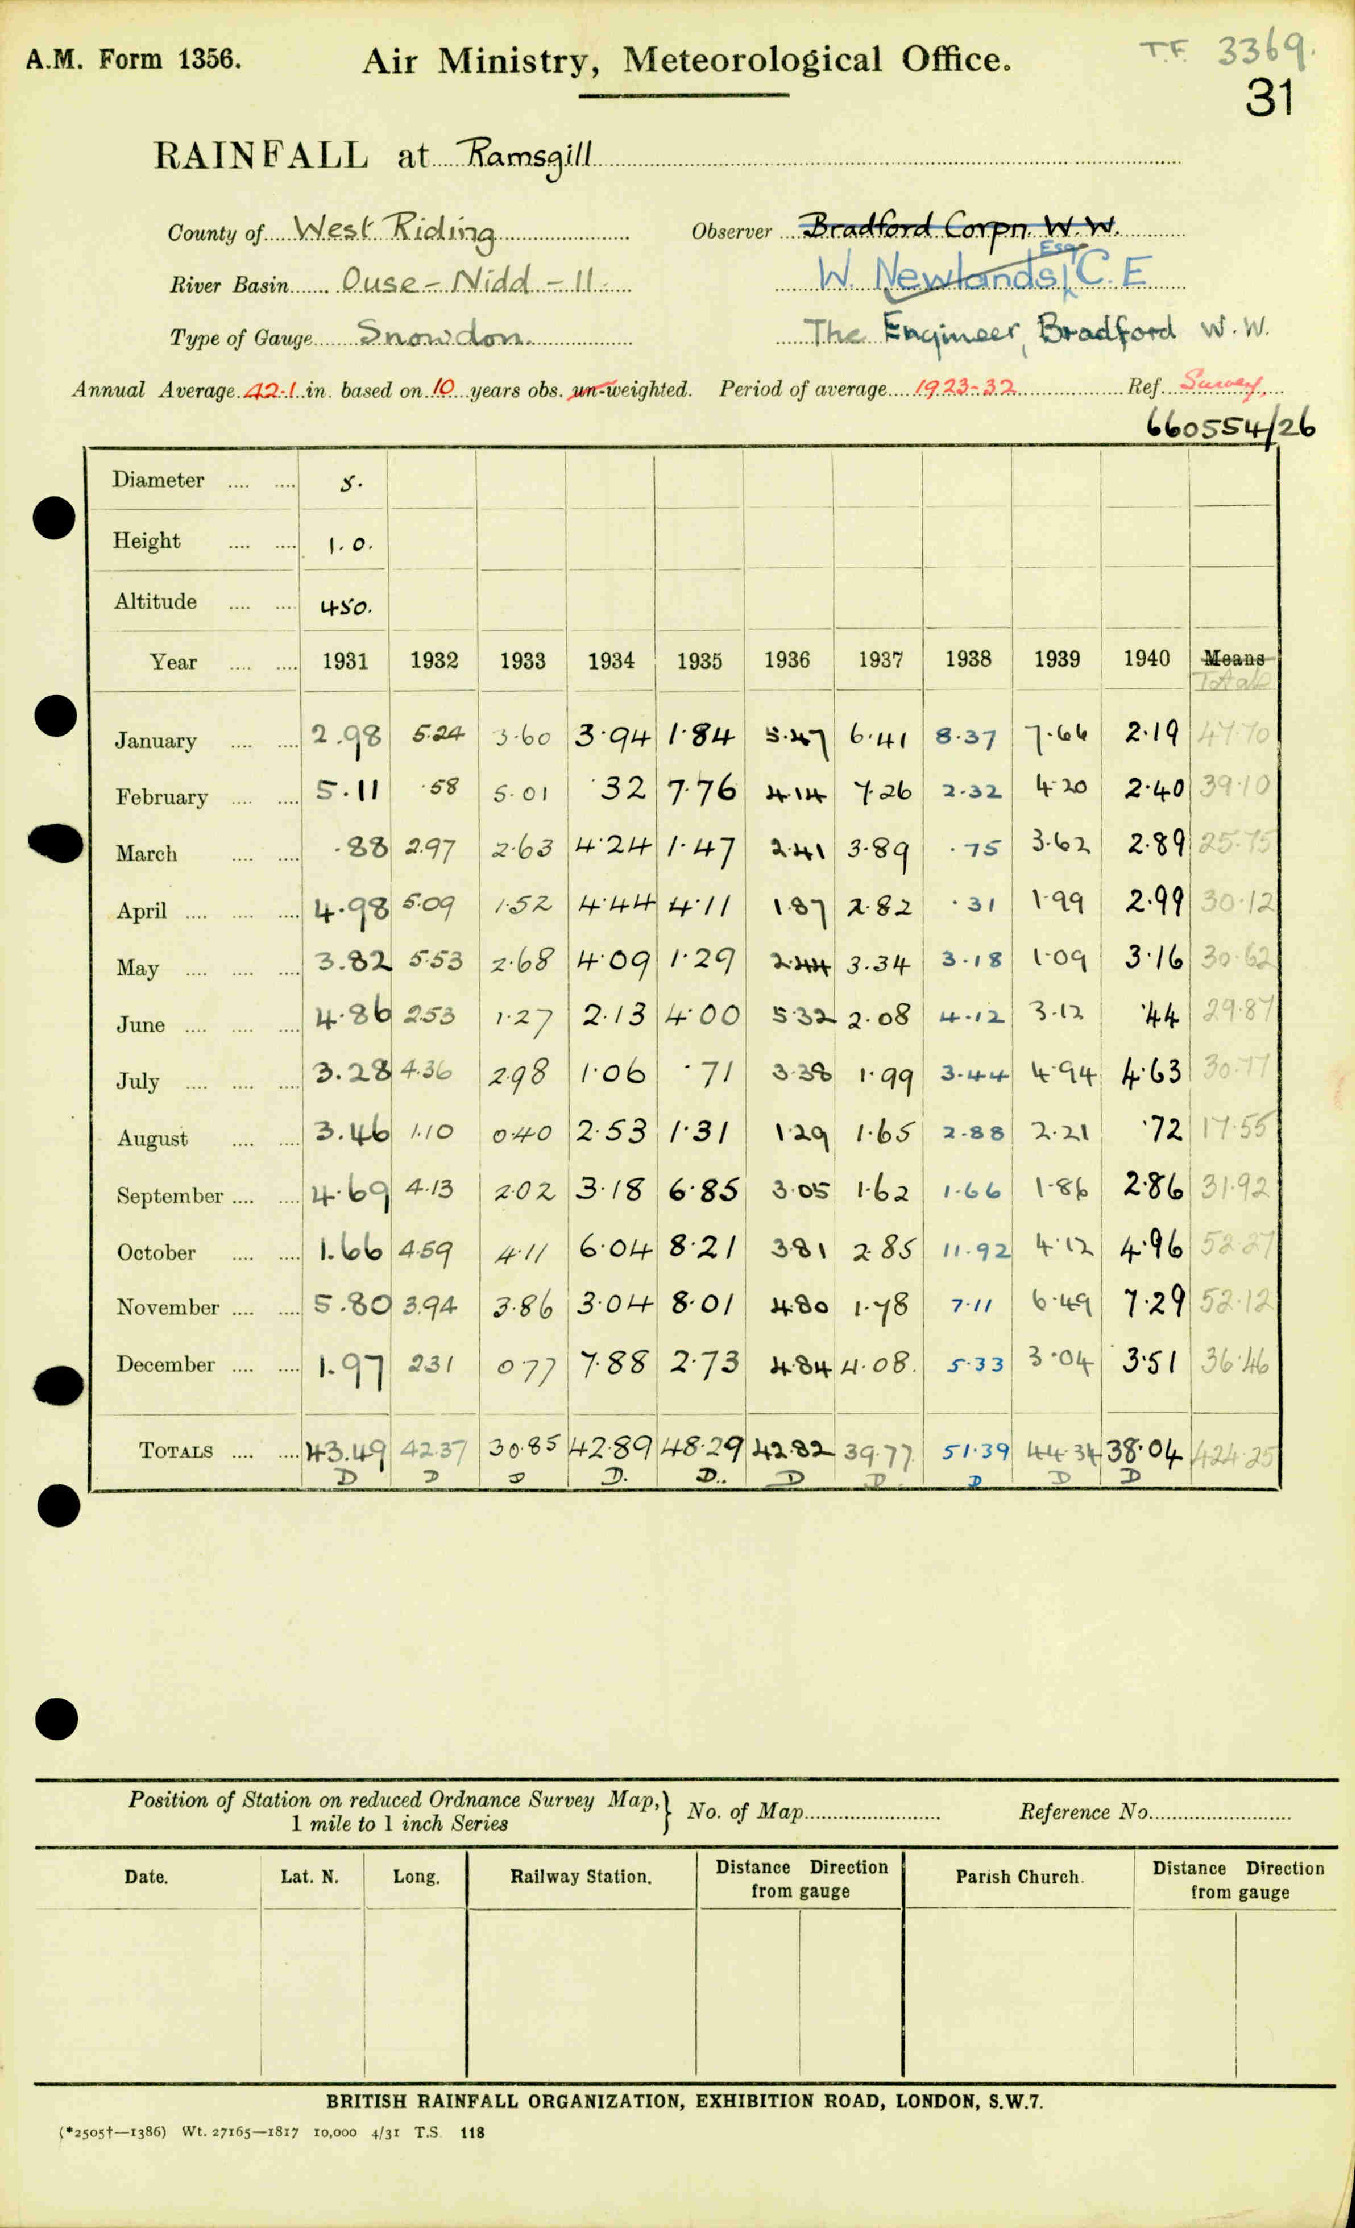 A.M. Form 1356. Air Ministry, Meteorological Office. T.F. 3369.
31
RAINFALL at Ramsgill
County of West Riding Observer Bradford Corpn. W.W.
River Basin Ouse - Nidd - 11. W. Newlands, Esq. C.E
Type of Gauge Snowdon. The Engineer, Bradford W.W.
Annual Average 42.1 in. based on 10 years obs. un-weighted. Period of average 1923-32 Ref. Survey.
660554/26
Diameter 5.
Height 1.0.
Altitude 450.
Year 1931 1932 1933 1934 1935 1936 1937 1938 1939 1940 Means
Total
January 2.98 5.24 3.60 3.94 1.84 5.47 6.41 8.37 7.66 2.19 47.70
February 5.11 .58 5.01 .32 7.76 4.14 7.26 2.32 4.20 2.40 39.10
March .88 2.97 2.63 4.24 1.47 2.41 3.89 .75 3.62 2.89 25.75
April 4.98 5.09 1.52 4.44 4.11 1.87 2.82 .31 1.99 2.99 30.12
May 3.82 5.53 2.68 4.09 1.29 2.44 3.34 3.18 1.09 3.16 30.62
June 4.86 2.53 1.27 2.13 4.00 5.32 2.08 4.12 3.12 .44 29.87
July 3.28 4.36 2.98 1.06 .71 3.38 1.99 3.44 4.94 4.63 30.77
August 3.46 1.10 0.40 2.53 1.31 1.29 1.65 2.88 2.21 .72 17.55
September 4.69 4.13 2.02 3.18 6.85 3.05 1.62 1.66 1.86 2.86 31.92
October 1.66 4.59 4.11 6.04 8.21 3.81 2.85 11.92 4.12 4.96 52.27
November 5.80 3.94 3.86 3.04 8.01 4.80 1.78 7.11 6.49 7.29 52.12
December 1.97 2.31 0.77 7.88 2.73 4.84 4.08. 5.33 3.04 3.51 36.46
TOTALS 43.49 42.37 30.85 42.89 48.29 42.82 39.77 51.39 44.34 38.04 424.25
D D D D. D.. D D. D D D
Position of Station on reduced Ordnance Survey Map, } No. of Map Reference No.
1 mile to 1 inch Series
Date. Lat. N. Long. Railway Station. Distance Direction from gauge Parish Church. Distance Direction from gauge
BRITISH RAINFALL ORGANIZATION, EXHIBITION ROAD, LONDON, S.W.7.
(*2505†—1386) Wt. 27165—1817 10,000 4/31 T.S. 118